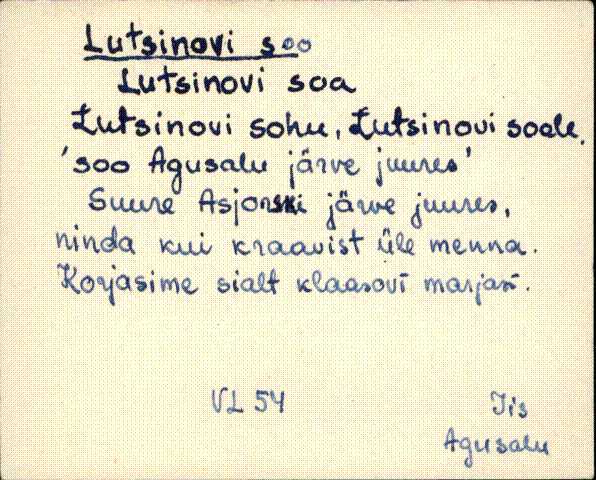 Lutsinovi soo
Lutsinovi soa
Lutsinovi sohu, Lutsinovi soale.
'soo Agusalu järve juures'
Suure Asjonski järve juures,
ninda kui kraavist üle menna.
Korjasime sialt klaasovi marjasi.
VL 54
Iis
Agusalu